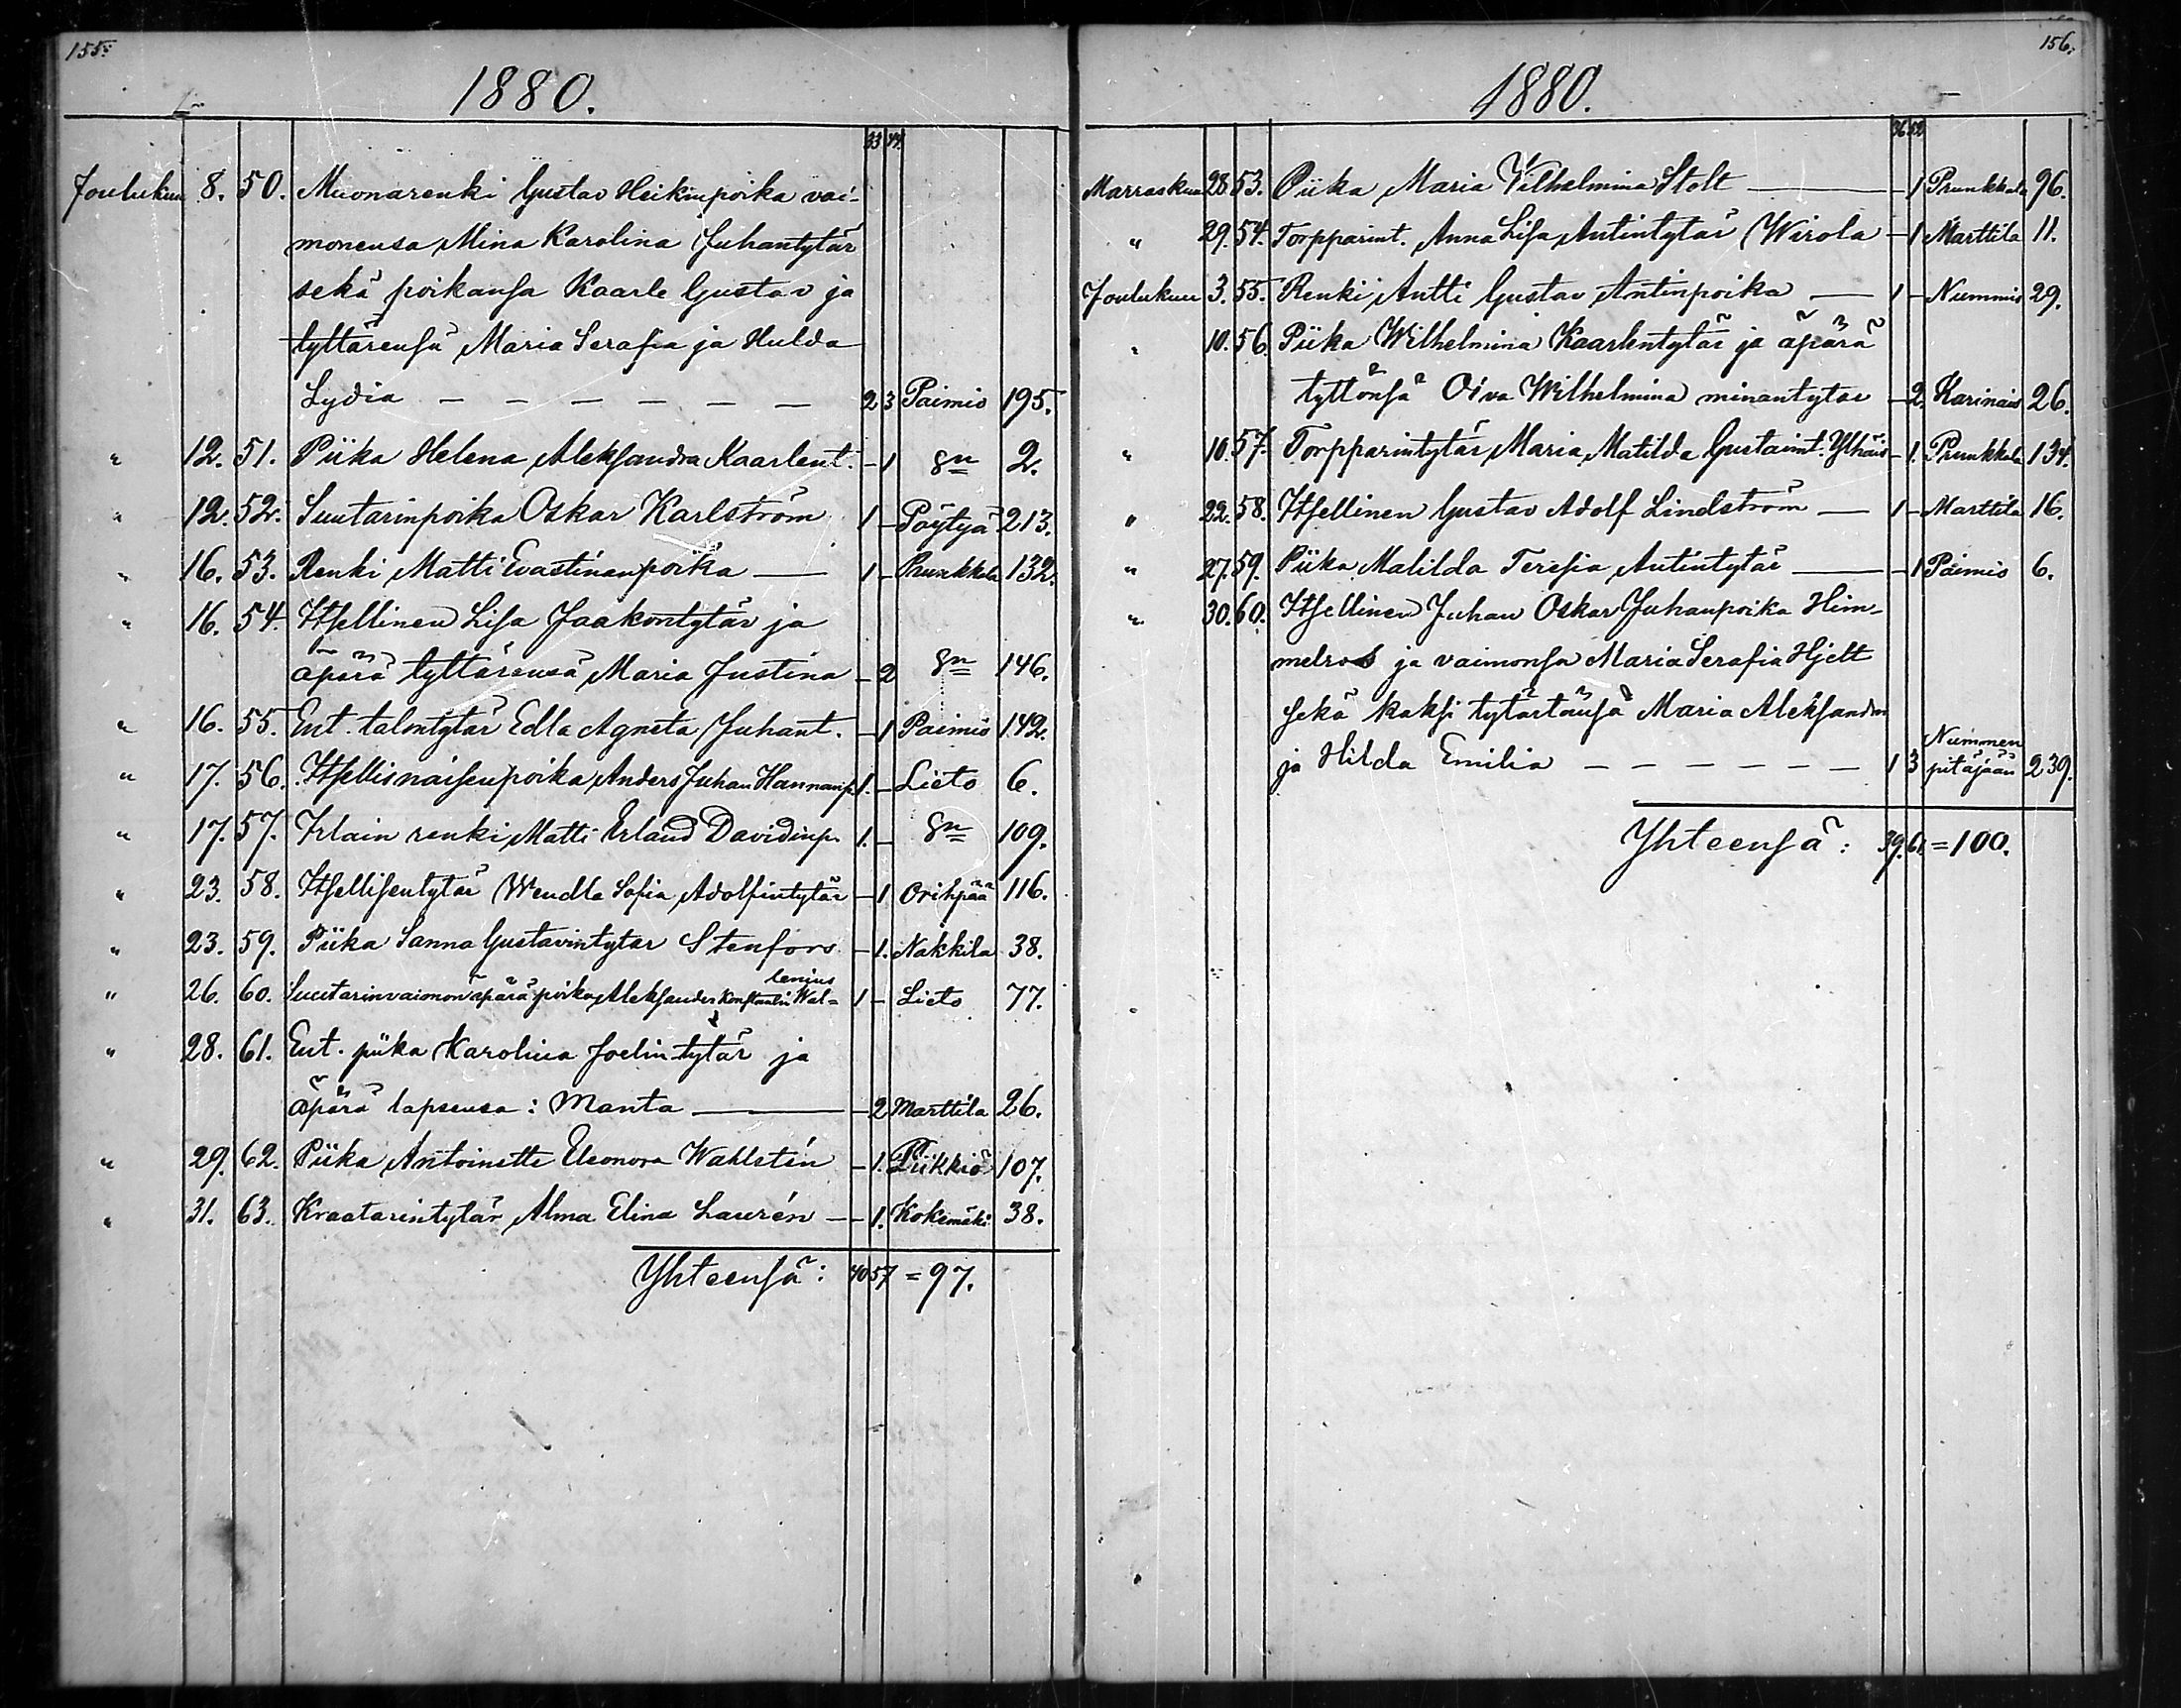 155.
1880.
33 44
Joulukuu 8. 50. Muonarenki Gustav Heikinpoika vai-
monensa Mina Karolina Juhantytär
sekä poikansa Kaarle Gustav ja
tyttärensä Maria Serafia ja Hulda
Lydia — — — — — — 2 3 Paimio 195.
" 12. 51. Piika Helena Aleksandra Kaarlent. - 1 2.
" 12. 52. Suutarinpoika Oskar Karlström 1 - Pöytyä 213.
" 16. 53. Renki Matti Evastinanpoika — 1 - Prunkkala 132.
" 16. 54. Itsellinen Lisa Jaakontytär ja
äpärä tyttärensä Maria Justina - 2 146.
" 16. 55. Ent. talontytär Edla Agneta Juhant. - 1 Paimio 142.
" 17. 56. Itsellisnaisenpoika Anders Juhan Hannanp. 1. - Lieto 6.
" 17. 57. Irlain renki Matti Erland Davidinp. 1. - 109.
" 23. 58. Itsellisentytär Wendla Sofia Adolfintytär - 1 Oripää 116.
" 23. 59. Piika Sanna Gustavintytär Stenfors - 1. Nakkila 38.
lenius
" 26. 60. Suutarinvaimon äpärä poika, Aleksander Konstantin Wal= 1 - Lieto 77.
" 28. 61. Ent. piika Karolina Joelintytär ja
äpärä lapsensa: Manta — - 2 Marttila 26.
" 29. 62. Piika Antoinette Eleonora Wahlstén - 1. Piikkiö 107.
" 31. 63. Kraatarintytär Alma Elina Laurén — - 1. Kokemäki 38.
Yhteensä: 40 57 = 97.
156.
1880.
36 52
Marraskuu 28 53. Piika Maria Vilhelmina Stolt — - 1 Prunkkala 96.
" 29. 54. Torpparint. Anna Lisa Antintytär Wirola - 1 Marttila 11.
Joulukuu 3. 55. Renki Antti Gustav Antinpoika — 1 - Nummis 29.
" 10. 56. Piika Wilhelmina Kaarlentytär ja äpärä
tyttönsä Oiva Wilhelmina minantytär - 2. Karinais 26.
" 10. 57. Torpparintytär Maria Matilda Gustaint. Ylhäis - 1. Prunkkala 134.
" 22. 58. Itsellinen Gustav Adolf Lindström — 1 - Marttila 16.
" 27. 59. Piika Matilda Teresia Antintytär — - 1 Paimio 6.
" 30. 60. Itsellinen Juhan Oskar Juhanpoika Him-
melros ja vaimonsa Maria Serafia Hjelt
sekä kaksi tytärtänsä Maria Aleksandra
Nummen
ja Hilda Emilia — — — — — — 1 3 pitäjään 239.
Yhteensä: 39. 61. = 100.